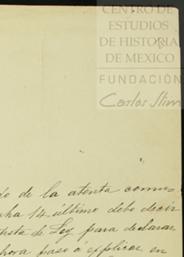 CENTRO DE
ESTUDIOS
DE HISTORIA
DE MEXICO
FUNDACIÓN
Carlos Slim
do de la atenta comu
cha 14 último debo decir
esta de Ley para declarar
hora paso á explicar en